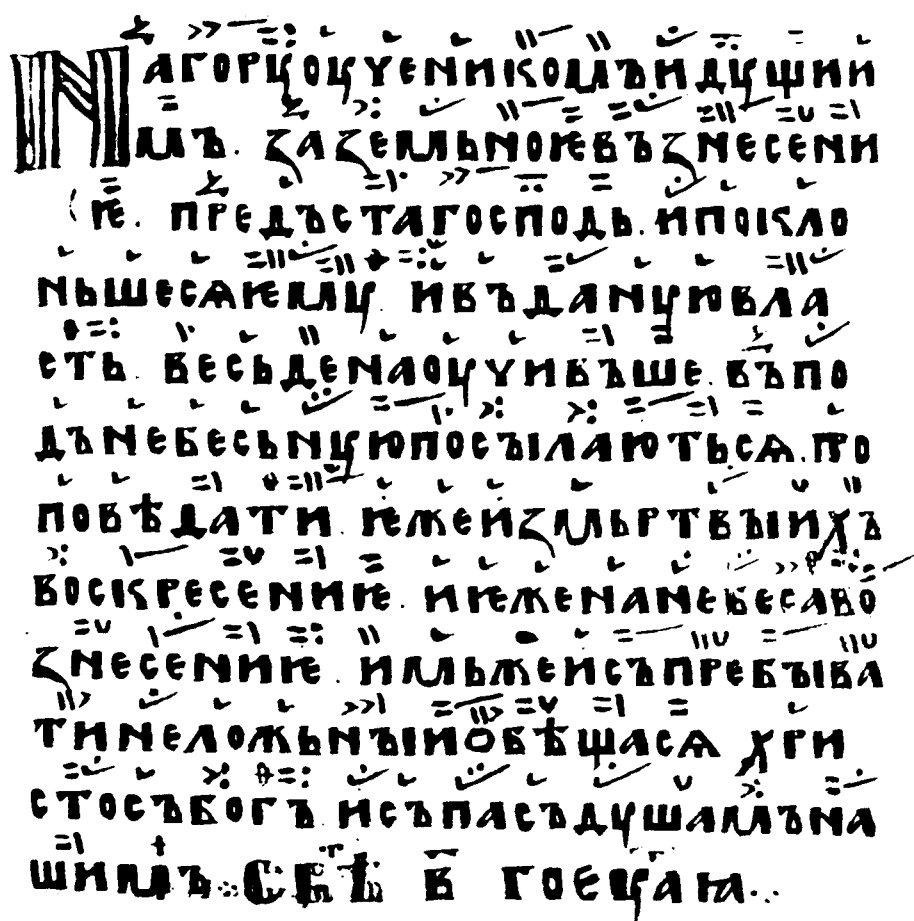 Нагоруоученикомъидущии
мъ. ꙁаꙁемльноѥвъꙁнесени
ѥ. предъстагосподь. ипокло
ньшесѧѥму. ивъдануювла
сть. весьденаоучивъше. въпо
дънебесьнуюпосъıлаютьсѧ. про
повѣдати. ѥжеиꙁмьртвъıихъ
воскресениѥ. иѥженанебесаво
ꙁнесениѥ. имьжеисъпребъıва
тинеложьнъıиобѣщасѧ хри
стосъбогъ. исъпасъдушамъна
шимъ